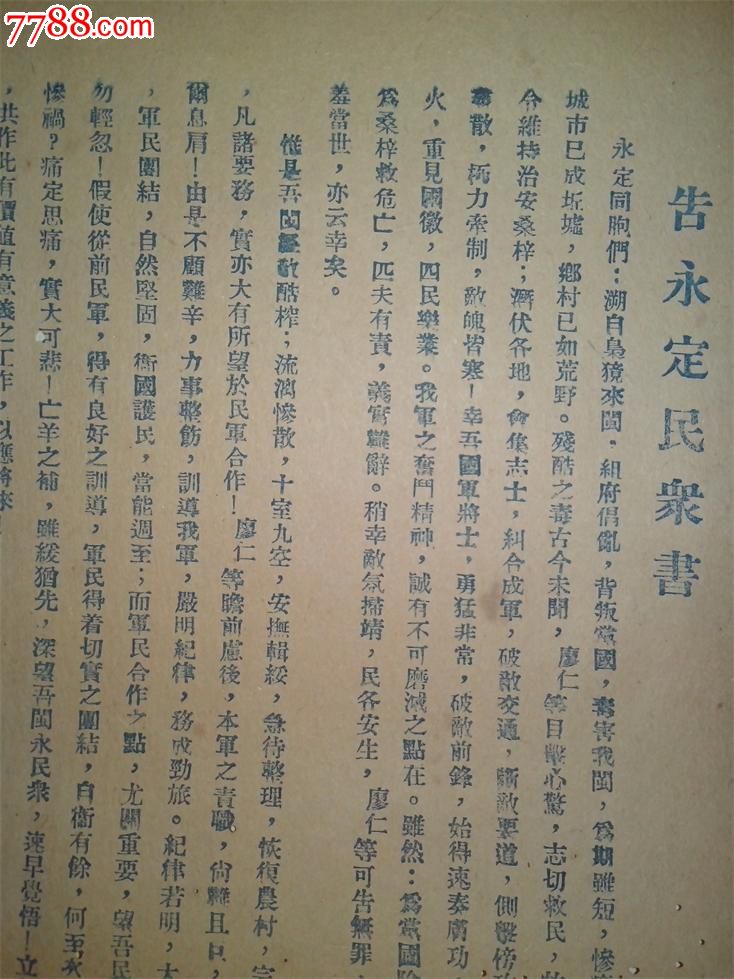 7788.com
告永定民衆書
永定同胞們：溯自梟獍來閩，組府倡亂，背叛黨國，毒害我閩，爲期雖短，慘
城市已成坵墟，鄉村已如荒野。殘酷之毒古今未聞，廖仁 等目擊心驚，志切救民，
令維持治安桑梓；潛伏各地，會集志士，糾合成軍，破敵交通，斷敵要道，側擊傍
散，極力牽制，敵魄皆寒！幸吾國軍將士，勇猛非常，破敵前鋒，始得速奏膚功
火，重見國徽，四民樂業。我軍之奮鬥精神，誠有不可磨滅之點在。雖然：爲黨國
爲桑梓救危亡，匹夫有責，義實難辭。稍幸敵氛掃靖，民各安生，廖仁 等可告無罪
羞當世，亦云幸矣。
惟是吾閩經敵酷榨；流漓慘散，十室九空，安撫輯綏，急待整理，恢復農村，
，凡諸要務，實亦大有所望於民軍合作！廖仁 等瞻前慮後，本軍之責職，尙難且
爾息肩！由是不顧難辛，力事整飭，訓導我軍，嚴明紀律，務成勁旅。紀律若明，
，軍民團結，自然堅固，衛國護民，當能週至；而軍民合作之點，尤關重要，望吾民
勿輕忽！假使從前民軍，得有良好之訓導，軍民得着切實之團結，自衛有餘，何至
慘禍？痛定思痛，實大可悲！亡羊之補，雖緩猶先，深望吾閩永民衆，速早覺悟！立
，共作此有價值有意義之工作，以應將來！